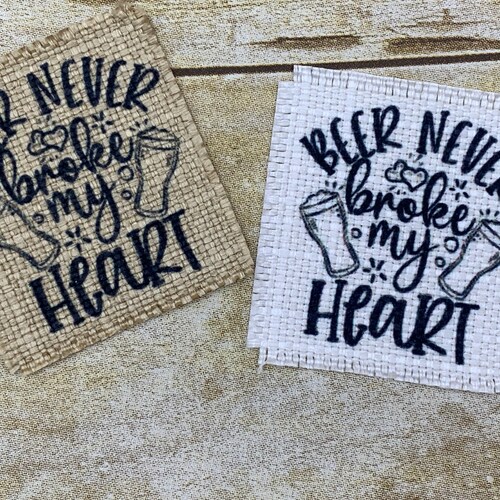 R NEVER
broke
my
HeART
BEER NEVE
broke
my
HeART